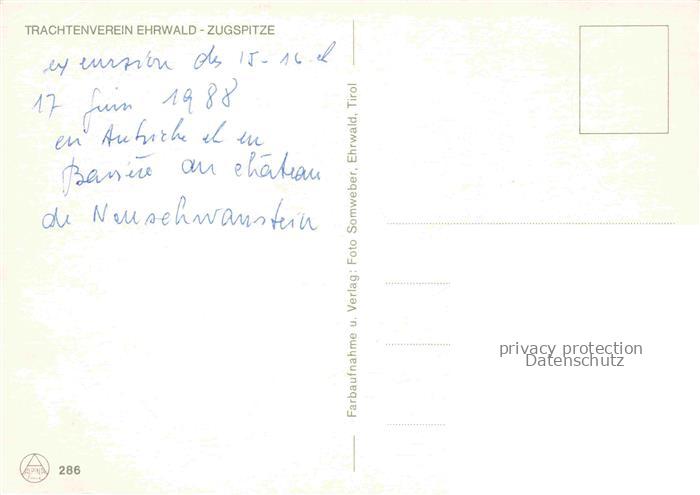 TRACHTENVEREIN EHRWALD - ZUGSPITZE
excursion des 15-16 et
17 juin 1988
en Autriche et en
Bavière au château
de Neuschwanstein
Farbaufnahme u. Verlag: Foto Somweber, Ehrwald, Tirol
privacy protection
Datenschutz
ALPINA
286